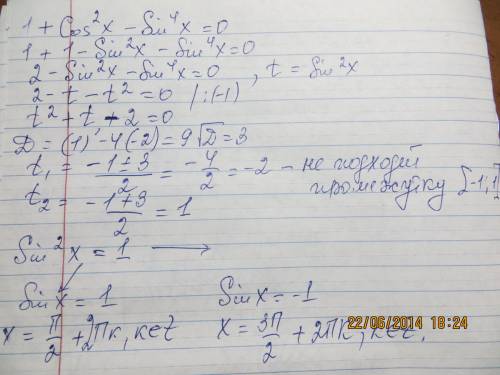 1 + Cos²x - Sin⁴x = 0
1 + 1 - Sin²x - Sin⁴x = 0
2 - Sin²x - Sin⁴x = 0 , t = Sin²x
2 - t - t² = 0 /:(-1)
t² + t - 2 = 0
D = (1)² - 4(-2) = 9 √D = 3
t₁ = (-1 ± 3)/2 = -4/2 = -2 - не подходит
промежутку [-1; 1]
t₂ = (-1+3)/2 = 1
Sin²x = 1 ⟶
Sin x = 1 Sin x = -1
x = π/2 + 2πк, к∈Z x = 3π/2 + 2πк, к∈Z.
22/06/2014 18:24